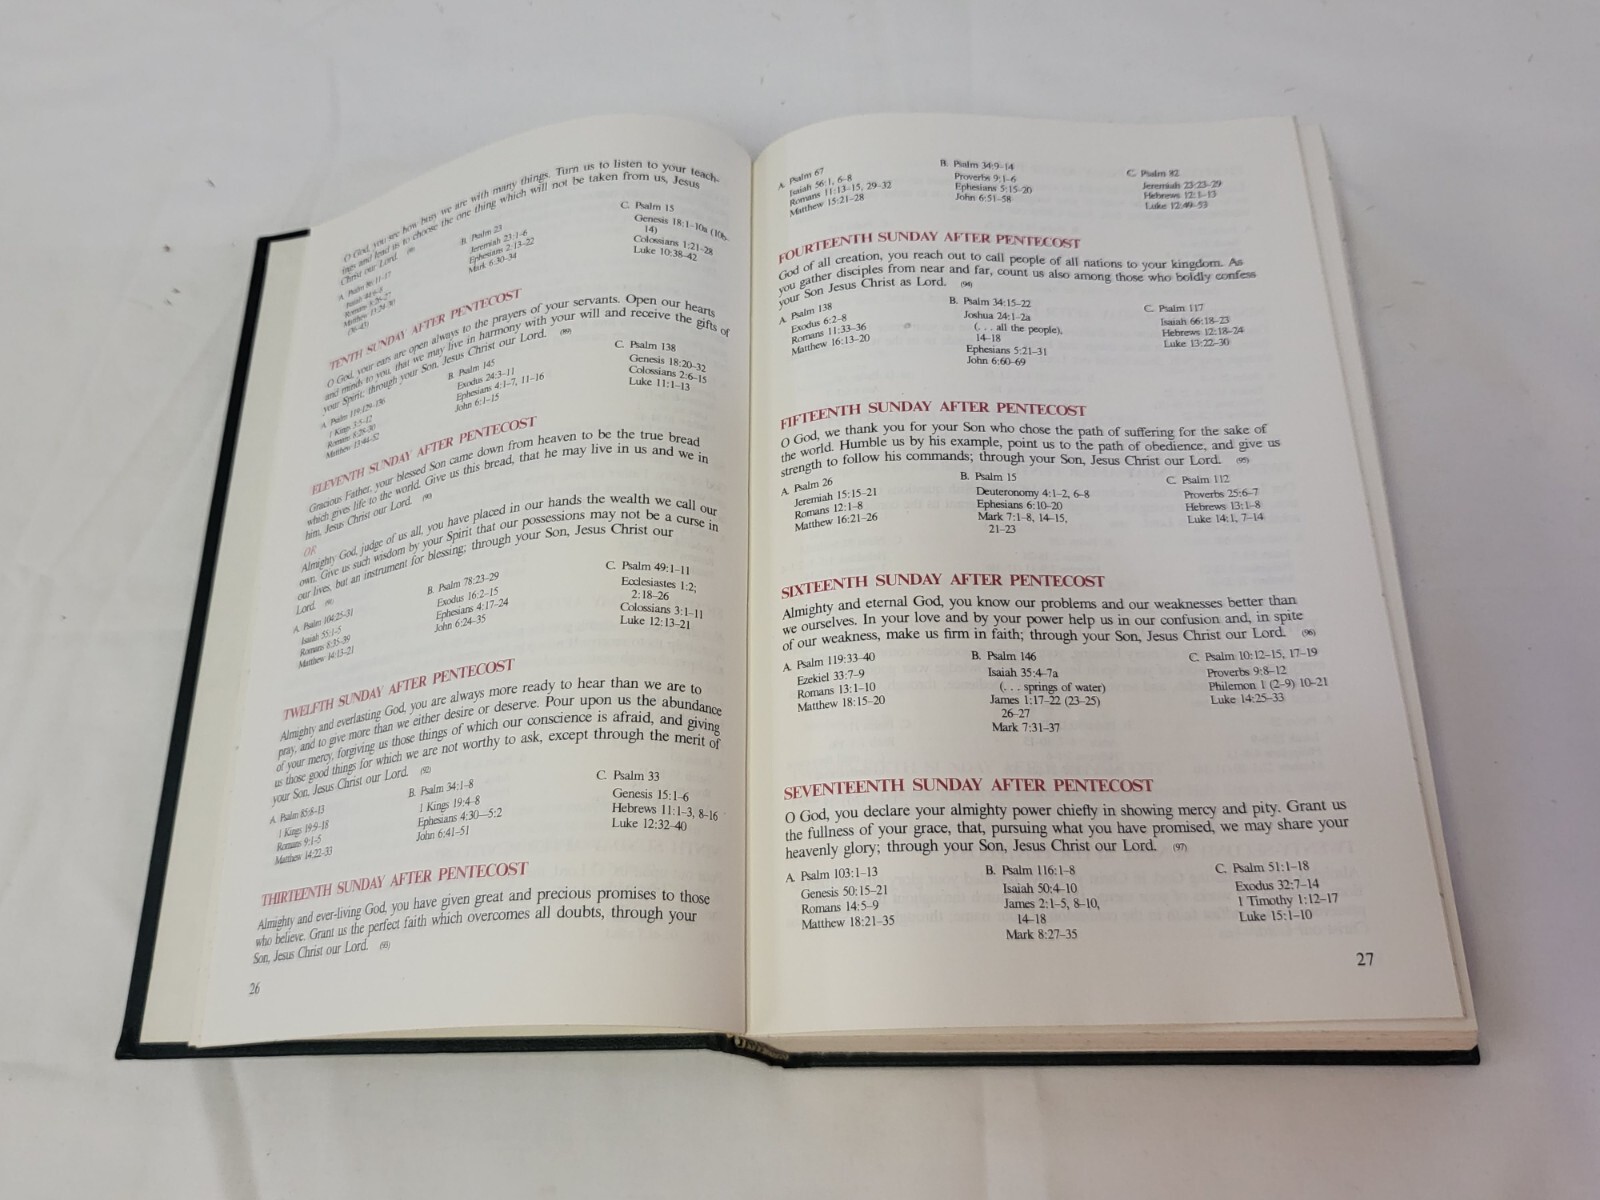 O God, you see how busy we are with many things. Turn us to listen to your teach-
ings and lead us to choose the one thing which will not be taken from us, Jesus
Christ our Lord.
A. Psalm 86:11-17
Isaiah 44:6-8
Romans 8:26-27
Matthew 13:24-30
(36-43)
B. Psalm 23
Jeremiah 23:1-6
Ephesians 2:13-22
Mark 6:30-34
C. Psalm 15
Genesis 18:1-10a (10b-
14)
Colossians 1:21-28
Luke 10:38-42
TENTH SUNDAY AFTER PENTECOST
O God, your ears are open always to the prayers of your servants. Open our hearts
and minds to you, that we may live in harmony with your will and receive the gifts of
your Spirit, through your Son, Jesus Christ our Lord. (89)
A. Psalm 119:129-136
1 Kings 3:5-12
Romans 8:28-30
Matthew 13:44-52
B. Psalm 145
Exodus 24:3-11
Ephesians 4:1-7, 11-16
John 6:1-15
C. Psalm 138
Genesis 18:20-32
Colossians 2:6-15
Luke 11:1-13
ELEVENTH SUNDAY AFTER PENTECOST
Gracious Father, your blessed Son came down from heaven to be the true bread
which gives life to the world. Give us this bread, that he may live in us and we in
him, Jesus Christ our Lord. (90)
OR
Almighty God, judge of us all, you have placed in our hands the wealth we call our
own. Give us such wisdom by your Spirit that our possessions may not be a curse in
our lives, but an instrument for blessing; through your Son, Jesus Christ our
Lord. (91)
A. Psalm 104:25-31
Isaiah 55:1-5
Romans 8:35-39
Matthew 14:13-21
B. Psalm 78:23-29
Exodus 16:2-15
Ephesians 4:17-24
John 6:24-35
C. Psalm 49:1-11
Ecclesiastes 1:2;
2:18-26
Colossians 3:1-11
Luke 12:13-21
TWELFTH SUNDAY AFTER PENTECOST
Almighty and everlasting God, you are always more ready to hear than we are to
pray, and to give more than we either desire or deserve. Pour upon us the abundance
of your mercy, forgiving us those things of which our conscience is afraid, and giving
us those good things for which we are not worthy to ask, except through the merit of
your Son, Jesus Christ our Lord. (92)
A. Psalm 85:8-13
1 Kings 19:9-18
Romans 9:1-5
Matthew 14:22-33
B. Psalm 34:1-8
1 Kings 19:4-8
Ephesians 4:30—5:2
John 6:41-51
C. Psalm 33
Genesis 15:1-6
Hebrews 11:1-3, 8-16
Luke 12:32-40
THIRTEENTH SUNDAY AFTER PENTECOST
Almighty and ever-living God, you have given great and precious promises to those
who believe. Grant us the perfect faith which overcomes all doubts, through your
Son, Jesus Christ our Lord. (93)
26
A. Psalm 67
Isaiah 56:1, 6-8
Romans 11:13-15, 29-32
Matthew 15:21-28
B. Psalm 34:9-14
Proverbs 9:1-6
Ephesians 5:15-20
John 6:51-58
C. Psalm 82
Jeremiah 23:23-29
Hebrews 12:1-13
Luke 12:49-53
FOURTEENTH SUNDAY AFTER PENTECOST
God of all creation, you reach out to call people of all nations to your kingdom. As
you gather disciples from near and far, count us also among those who boldly confess
your Son Jesus Christ as Lord. (94)
A. Psalm 138
Exodus 6:2-8
Romans 11:33-36
Matthew 16:13-20
B. Psalm 34:15-22
Joshua 24:1-2a
(. . . all the people),
14-18
Ephesians 5:21-31
John 6:60-69
C. Psalm 117
Isaiah 66:18-23
Hebrews 12:18-24
Luke 13:22-30
FIFTEENTH SUNDAY AFTER PENTECOST
O God, we thank you for your Son who chose the path of suffering for the sake of
the world. Humble us by his example, point us to the path of obedience, and give us
strength to follow his commands; through your Son, Jesus Christ our Lord. (95)
A. Psalm 26
Jeremiah 15:15-21
Romans 12:1-8
Matthew 16:21-26
B. Psalm 15
Deuteronomy 4:1-2, 6-8
Ephesians 6:10-20
Mark 7:1-8, 14-15,
21-23
C. Psalm 112
Proverbs 25:6-7
Hebrews 13:1-8
Luke 14:1, 7-14
SIXTEENTH SUNDAY AFTER PENTECOST
Almighty and eternal God, you know our problems and our weaknesses better than
we ourselves. In your love and by your power help us in our confusion and, in spite
of our weakness, make us firm in faith; through your Son, Jesus Christ our Lord. (96)
A. Psalm 119:33-40
Ezekiel 33:7-9
Romans 13:1-10
Matthew 18:15-20
B. Psalm 146
Isaiah 35:4-7a
(. . . springs of water)
James 1:17-22 (23-25)
26-27
Mark 7:31-37
C. Psalm 10:12-15, 17-19
Proverbs 9:8-12
Philemon 1 (2-9) 10-21
Luke 14:25-33
SEVENTEENTH SUNDAY AFTER PENTECOST
O God, you declare your almighty power chiefly in showing mercy and pity. Grant us
the fullness of your grace, that, pursuing what you have promised, we may share your
heavenly glory; through your Son, Jesus Christ our Lord. (97)
A. Psalm 103:1-13
Genesis 50:15-21
Romans 14:5-9
Matthew 18:21-35
B. Psalm 116:1-8
Isaiah 50:4-10
James 2:1-5, 8-10,
14-18
Mark 8:27-35
C. Psalm 51:1-18
Exodus 32:7-14
1 Timothy 1:12-17
Luke 15:1-10
27